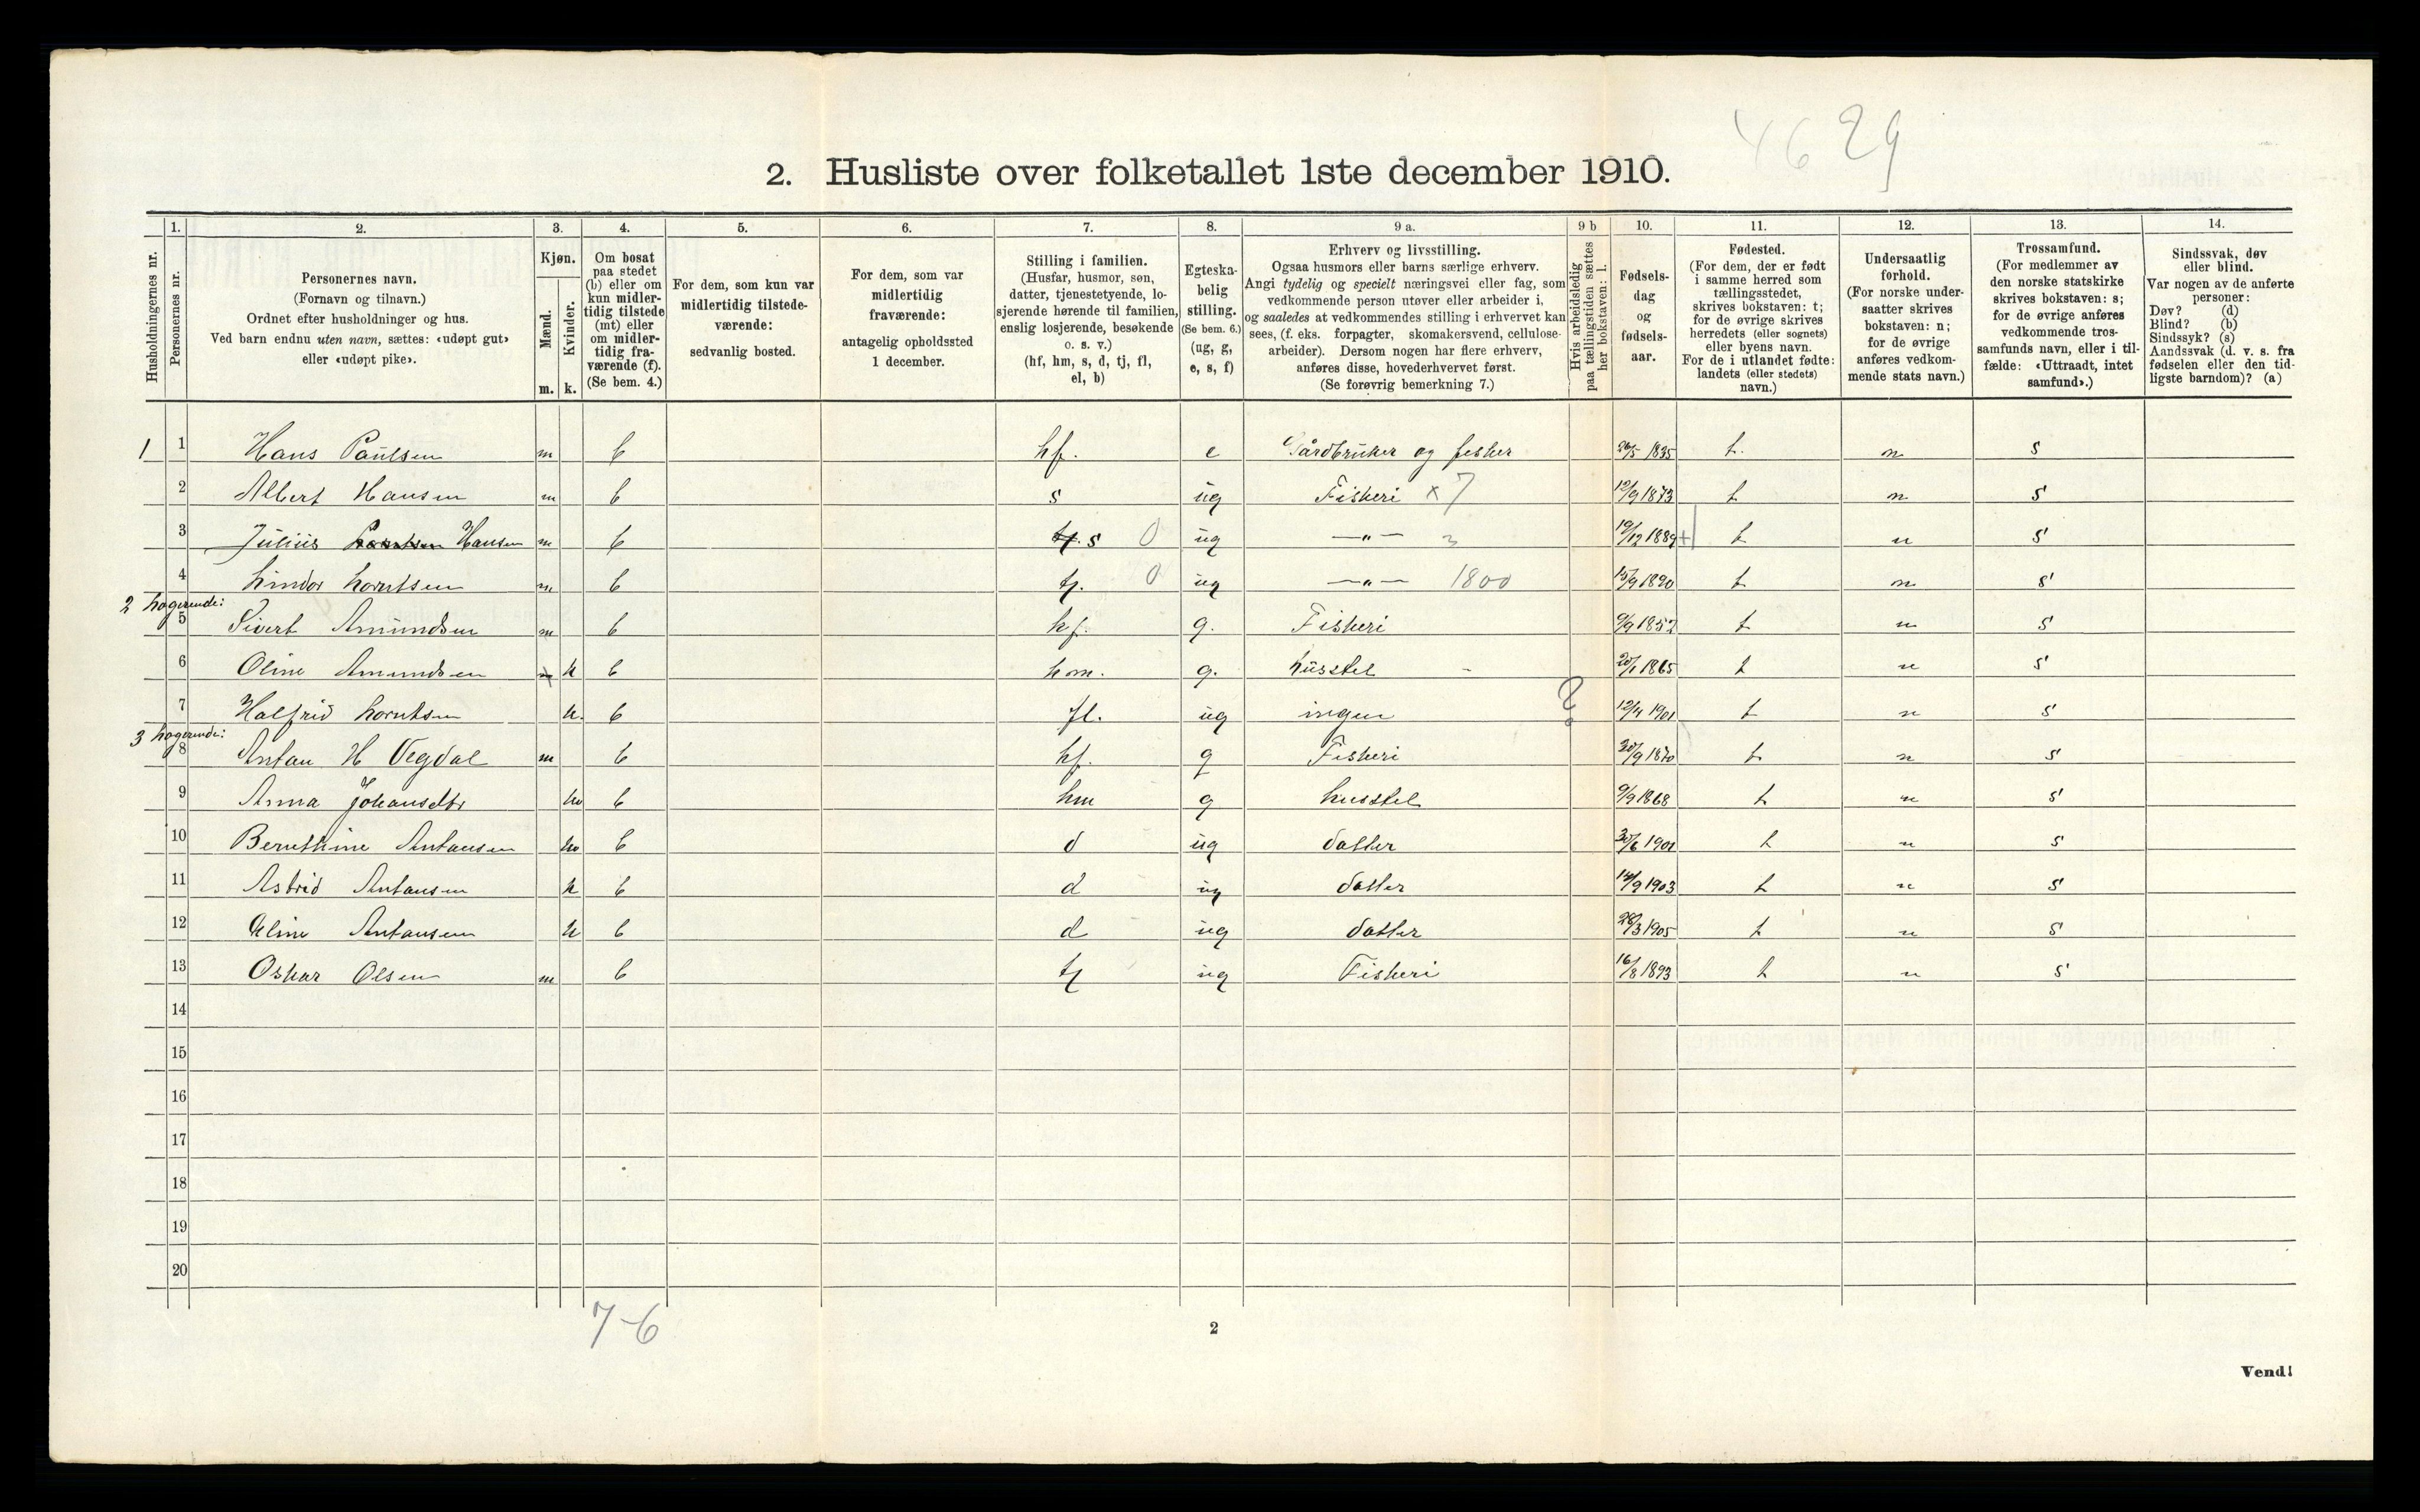 4629
2. Husliste over folketallet 1ste december 1910.
Husholdningernes nr.
1.
Personernes nr.
2.
Personernes navn.
(Fornavn og tilnavn.)
Ordnet efter husholdninger og hus.
Ved barn endnu uten navn, sættes: «udøpt gut»
eller «udøpt pike».
3.
Kjøn.
Mænd.
Kvinder.
m. k.
4.
Om bosat
paa stedet
(b) eller om
kun midler-
tidig tilstede
(mt) eller
om midler-
tidig fra-
værende (f).
(Se bem. 4.)
5.
For dem, som kun var
midlertidig tilstede-
værende:
sedvanlig bosted.
6.
For dem, som var
midlertidig
fraværende:
antagelig opholdssted
1 december.
7.
Stilling i familien.
(Husfar, husmor, søn,
datter, tjenestetyende, lo-
sjerende hørende til familien,
enslig losjerende, besøkende
o. s. v.)
(hf, hm, s, d, tj, fl,
el, b)
8.
Egteska-
belig
stilling.
(Se bem. 6.)
(ug, g,
e, s, f)
9 a.
Erhverv og livsstilling.
Ogsaa husmors eller barns særlige erhverv.
Angi tydelig og specielt næringsvei eller fag, som
vedkommende person utøver eller arbeider i,
og saaledes at vedkommendes stilling i erhvervet kan
sees, (f. eks. forpagter, skomakersvend, cellulose-
arbeider). Dersom nogen har flere erhverv,
anføres disse, hovederhvervet først.
(Se forøvrig bemerkning 7.)
9 b
Hvis arbeidsledig
paa tællingstiden sættes
her bokstaven: l.
10.
Fødsels-
dag
og
fødsels-
aar.
11.
Fødested.
(For dem, der er født
i samme herred som
tællingsstedet,
skrives bokstaven: t;
for de øvrige skrives
herredets (eller sognets)
eller byens navn.
For de i utlandet fødte:
landets (eller stedets)
navn.)
12.
Undersaatlig
forhold.
(For norske under-
saatter skrives
bokstaven: n;
for de øvrige
anføres vedkom-
mende stats navn.)
13.
Trossamfund.
(For medlemmer av
den norske statskirke
skrives bokstaven: s;
for de øvrige anføres
vedkommende tros-
samfunds navn, eller i til-
fælde: «Uttraadt, intet
samfund».)
14.
Sindssvak, døv
eller blind.
Var nogen av de anførte
personer:
Døv? (d)
Blind? (b)
Sindssyk? (s)
Aandssvak (d. v. s. fra
fødselen eller den tid-
ligste barndom)? (a)
1 1 Hans Paulsen m b hf. e Gårdbruker og fisker 26/5 1835 t. n s
2 Albert Hansen m b s ug Fiskeri x 7 12/9 1873 t n s
3 Julius Hansen m b tj. s 0 ug —"— 3 19/12 1889 + t n s
4 Lindor Lorntsen m b tj. 0 ug —"— 1800 15/9 1890 t n s
2 logerende:
5 Sivert Amundsen m b hf. g. Fiskeri 9/9 1852 t n s
6 Oline Amundsen k b hm. g. husstel - 20/1 1865 t n s
7 Halfrid Lorntsen k. b fl. ug ingen ? 12/4 1901 t n s
3 logerende:
8 Antan H Vegdal m b hf. g Fiskeri 30/9 1870 t n s
9 Anna Johansdtr k b hm g husstel 9/9 1868 t n s
10 Bernthine Antansen k b d ug datter 30/6 1901 t n s
11 Astrid Antansen k b d ug datter 14/9 1903 t n s
12 Eline Antansen k b d ug datter 28/3 1905 t n s
13 Oskar Olsen m b tj ug Fiskeri 16/8 1893 t n s
14
15
16
17
18
19
20
7-6
2
Vend!